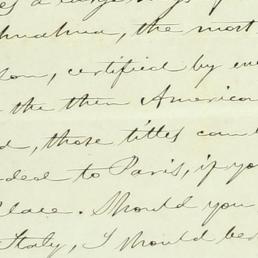 a large
huahua, the most
son, certified by
the then American
d, those titles
ded to Paris, if yo
place. Should you
Italy, I should be